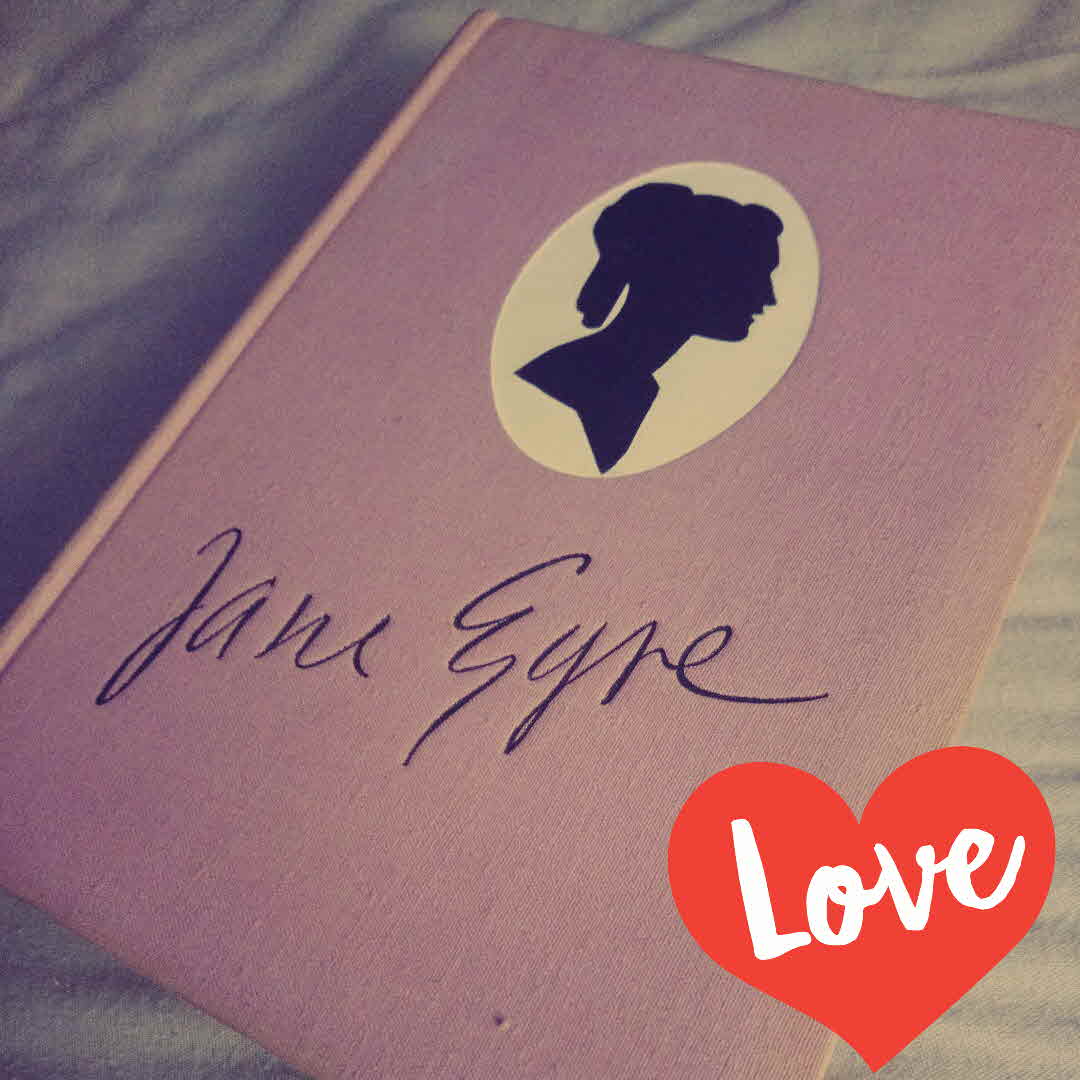 Jane Eyre
Love